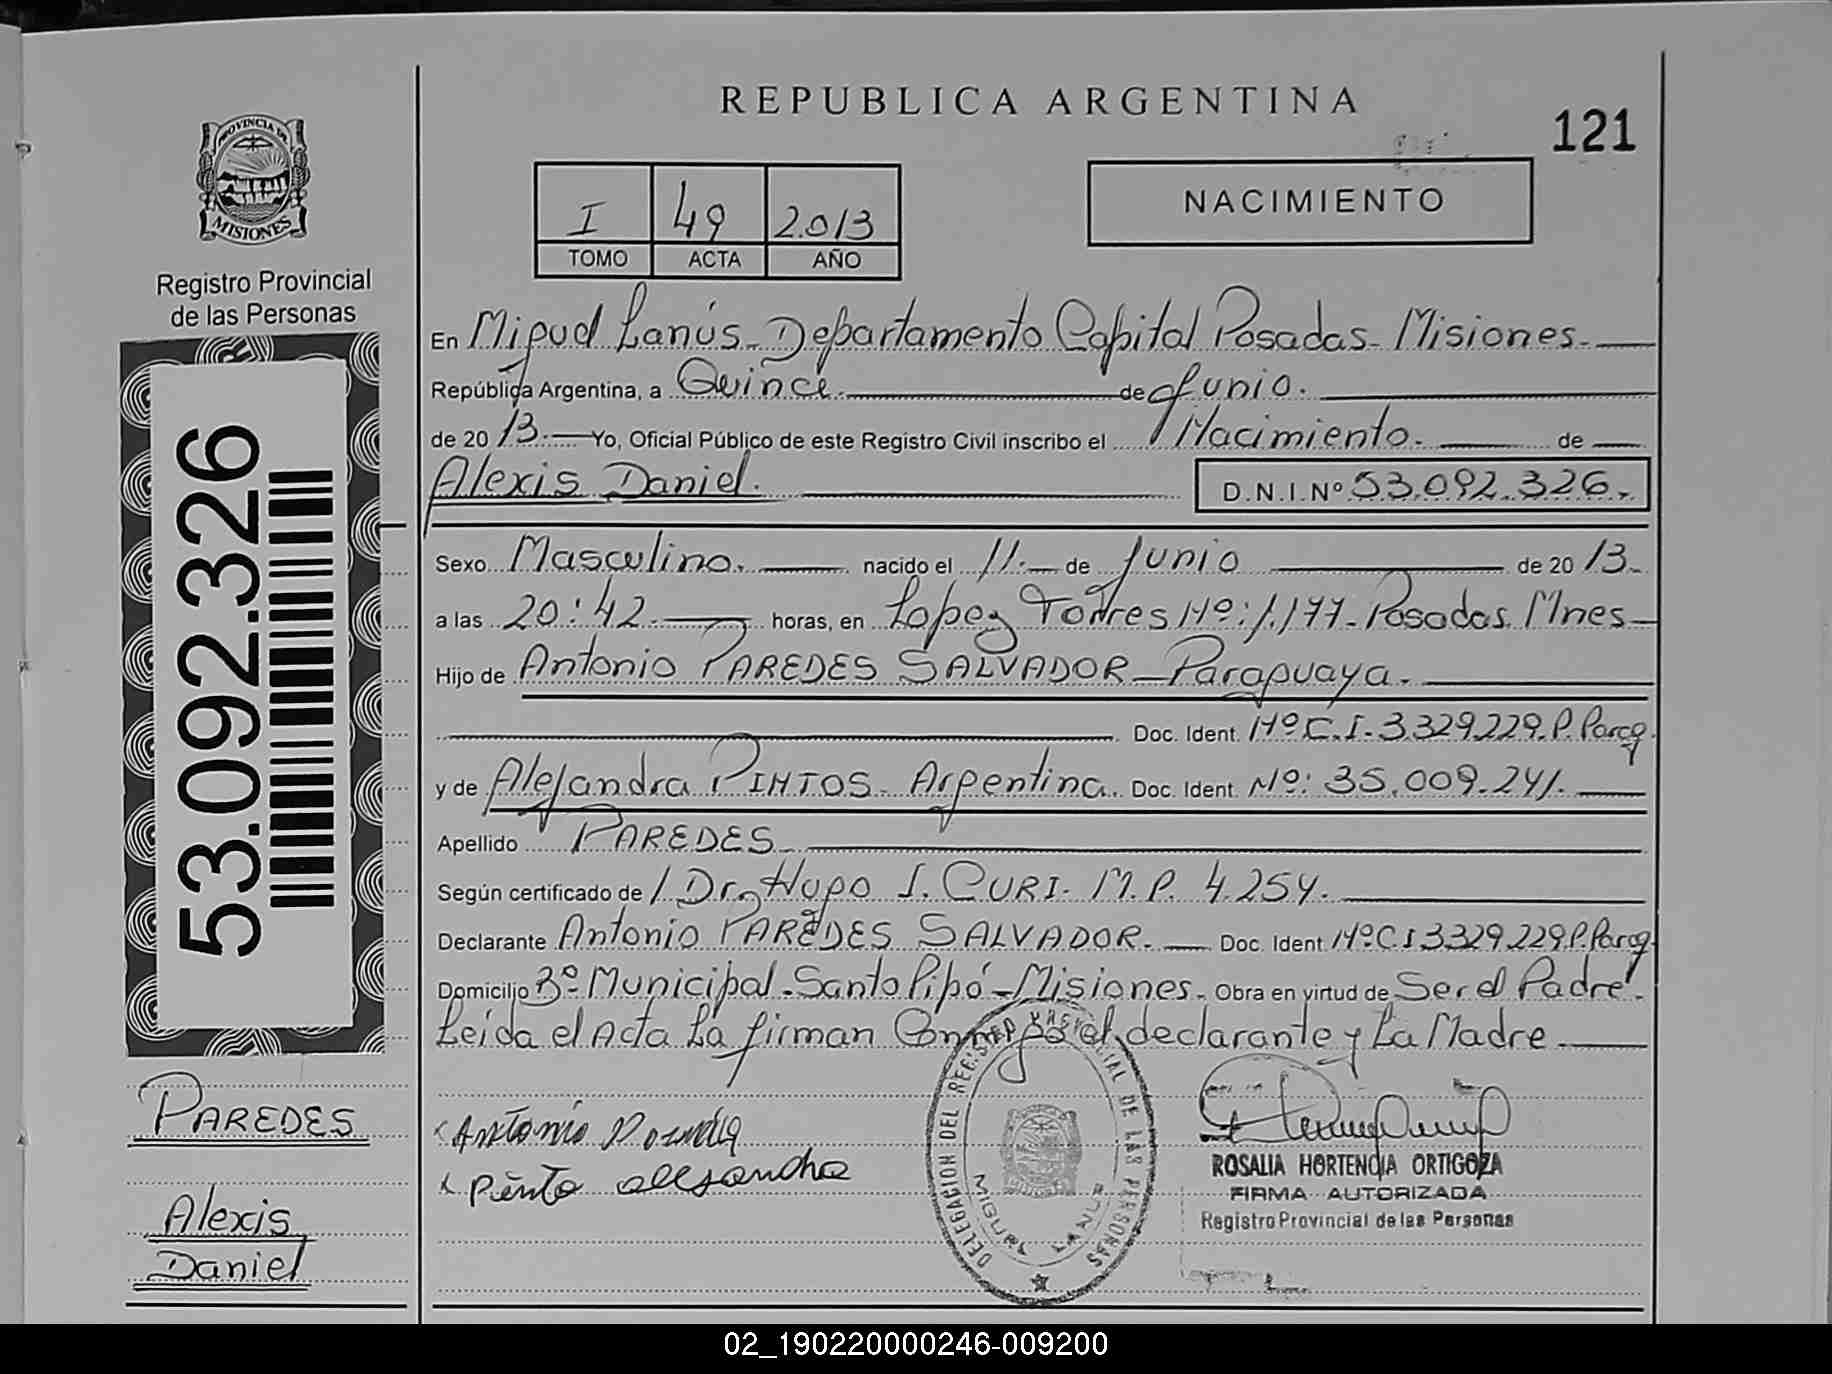 REPUBLICA ARGENTINA
121
PROVINCIA DE
MISIONES
Registro Provincial
de las Personas
I 49 2.013
TOMO ACTA AÑO
NACIMIENTO
En Miguel Lanús - Departamento Capital Posadas - Misiones.
República Argentina, a Quince. de Junio.
de 20 13. Yo, Oficial Público de este Registro Civil inscribo el Nacimiento. de
Alexis Daniel. D.N.I.Nº 53.092.326.
53.092.326
Sexo Masculino. nacido el 11. de Junio de 20 13.
a las 20:42. horas, en Lopez Torres Nº: 1.177 - Posadas Mnes
Hijo de Antonio PAREDES SALVADOR - Paraguaya.
Doc. Ident. Nº C.I. 3.329.229. P. Parag.
y de Alejandra PINTOS - Argentina. Doc. Ident. Nº: 35.009.241.
Apellido PAREDES
Según certificado de Dr. Hugo I. CURI. M.P. 4.254.
Declarante Antonio PAREDES SALVADOR. Doc. Ident. Nº C.I 3.329.229. P. Parag.
Domicilio Bº Municipal - Santo Pipó - Misiones. Obra en virtud de Ser el Padre.
Leida el Acta La firman Conmigo el declarante y La Madre
PAREDES
Alexis
Daniel
x Antonio
x Pinto
DELEGACION DEL REGISTRO PROVINCIAL DE LAS PERSONAS
MIGUEL LANUS
ROSALIA HORTENCIA ORTIGOZA
FIRMA AUTORIZADA
Registro Provincial de las Personas
02_190220000246-009200